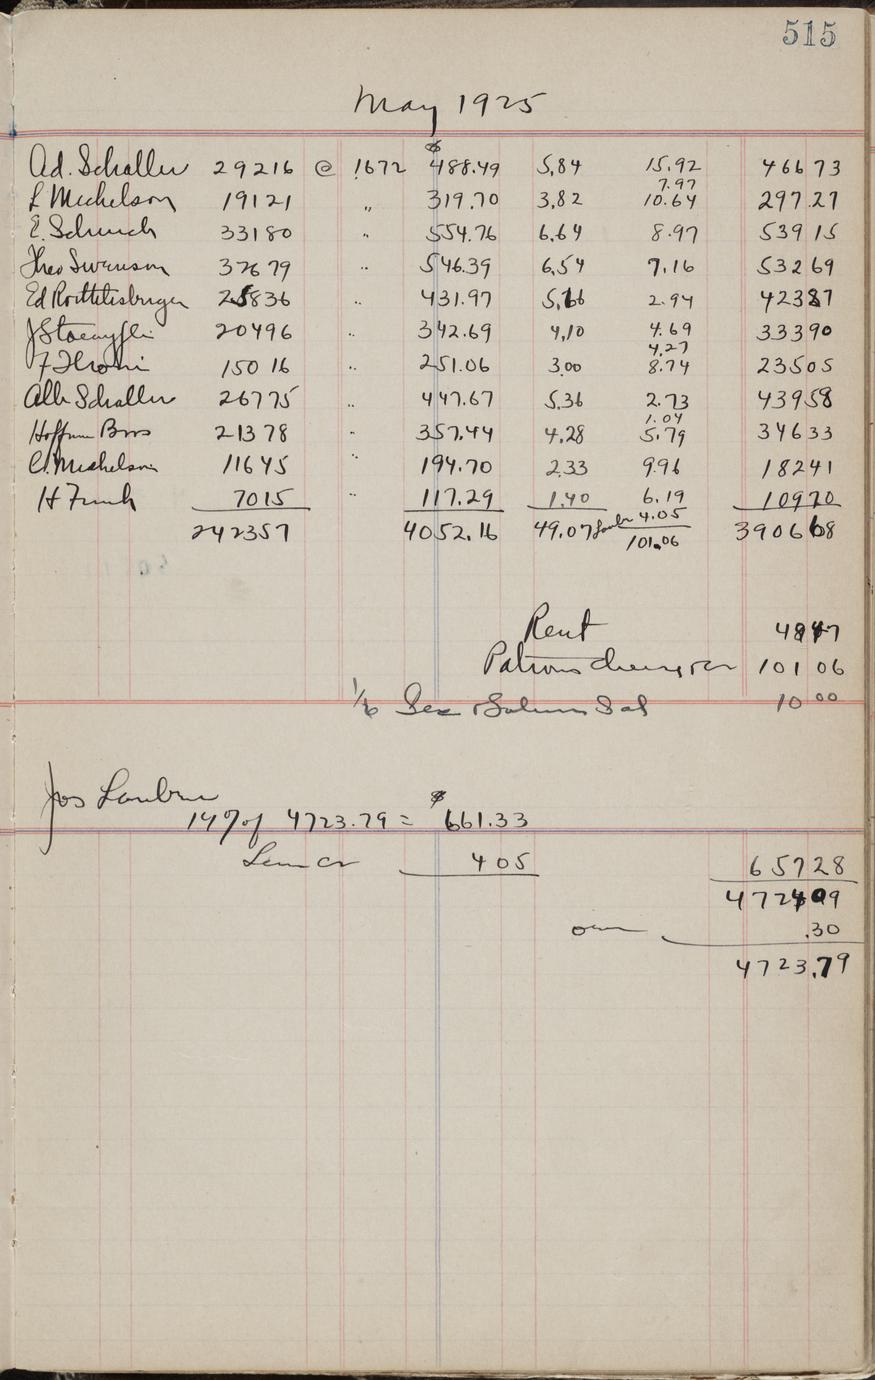 515
May 1925
Ad. Schaller 29216 @ 1672 $488.49 5,84 15.92 466 73
7.97
L Michelson 19121 " 319.70 3,82 10.64 297.27
E. Schmich 33180 " 554.76 6,64 8.97 539 15
Theo Swanson 32679 " 546.39 6,54 7,16 532 69
Ed Rothlisberger 25836 " 431.97 5,16 2.94 423 87
20496 " 342.69 4,10 4.69 333 90
4,27
15016 " 251.06 3.00 8.74 235 05
Alb Schaller 26775 " 447.67 5,36 2.73 439 58
1.04
Hoffman Bros 21378 " 357.44 4,28 5.79 346 33
C. Michelson 11645 " 194.70 2.33 9.96 182 41
H Funk 7015 " 117.29 1,40 6.19 109 70
4.05
242357 4052.16 49.07 101.06 3906 68
Rent 48 47
Patrons cheese 101 06
1/6 Sec Sal 10 00
Jos Laubner
14% of 4723.79 = $661.33
cr 4 05 657 28
4724 09
.30
4723.79